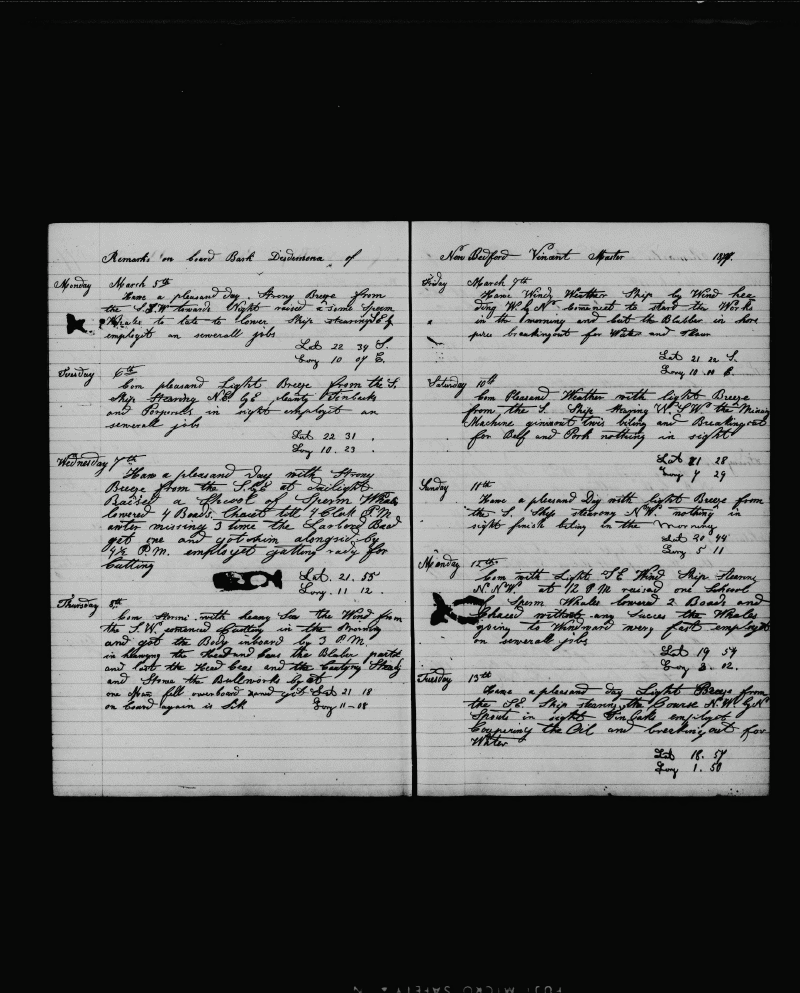 Remarks on board Bark Desdemona of
Monday March 5th
Have a pleasand day Strong Breze from
the S.S.W towards Night raised a some Sperm
Whales to late to lower Ship stearing E by
employit an severall jobs
Lat 22 39 S.
Long 10 07 E.
Tuesday 6th
Com pleasand Light Breeze from the S.
Ship Stearing N.E. by E plenty Finbacks
and Porperls in sight employit an
severall jobs
Lat 22 31
Long 10 23
Wednesday 7th
Have a pleasand Day with Strong
Breeze from the S.E at Dailight
Raised a School of Sperm Whale
lowered 4 Boads. Chaset till 4 Clok P.M
after missing 3 time the Larbord Boad
get one and got him alongside by
4½ P.M. employet getting rady for
Cutting
Lat. 21. 55
Long. 11 12
Thursday 8th
Com with heavy Sea the Wind from
the S.W. comenced Cutting in the Morning
and got the Body inboard by 3 P.M
in heavyng the Head and Cars the Blaber parted
and lost the Head Ceas and the Cuttyng Steag
and Stome the Bullworks by it
one Man fell overboard and got Lat 21 18
on board again is Sik Long 11-08
New Bedford Vinant Master
Friday March 9th
Have Windy Weather Ship by Wind hea
ding W by N comencet to start the Works
in the morning and cut the Blabber in hors
pice breakingout for Water and Flour
Lat 21 22 S.
Long 10 E.
Saturday 10th
Com Pleasand Weather with light Breeze
from the S. Ship stearing W.S.W the Mincing
Machine givinout twis boling and Breaking out
for Beef and Pork nothing in sight
Lat 21 28
Long 7 29
Sunday 11th
Have a pleasand Day with light Breeze from
the S. Ship stearing N.W. nothing in
sight finish boling in the Morning
Lat 20 44
Long 5 11
Monday 12th
Com with Light S E Wind Ship Stearing
N.N.W. at 12 P M raised one School
Sperm Whales lowered 2 Boads and
Chased without any Succes the Whales
going to Windward very fast employit
on severall jobs
Lat 19 54
Long 3. 02.
Tuesday 13th
Have a pleasand day Light Breeze from
the S.E. Ship stearing the Course N.W. by N
Spouts in sight Finbaks employet
Coupering the Oil and breeking out for
Water
Lat 18. 57
Long 1. 50